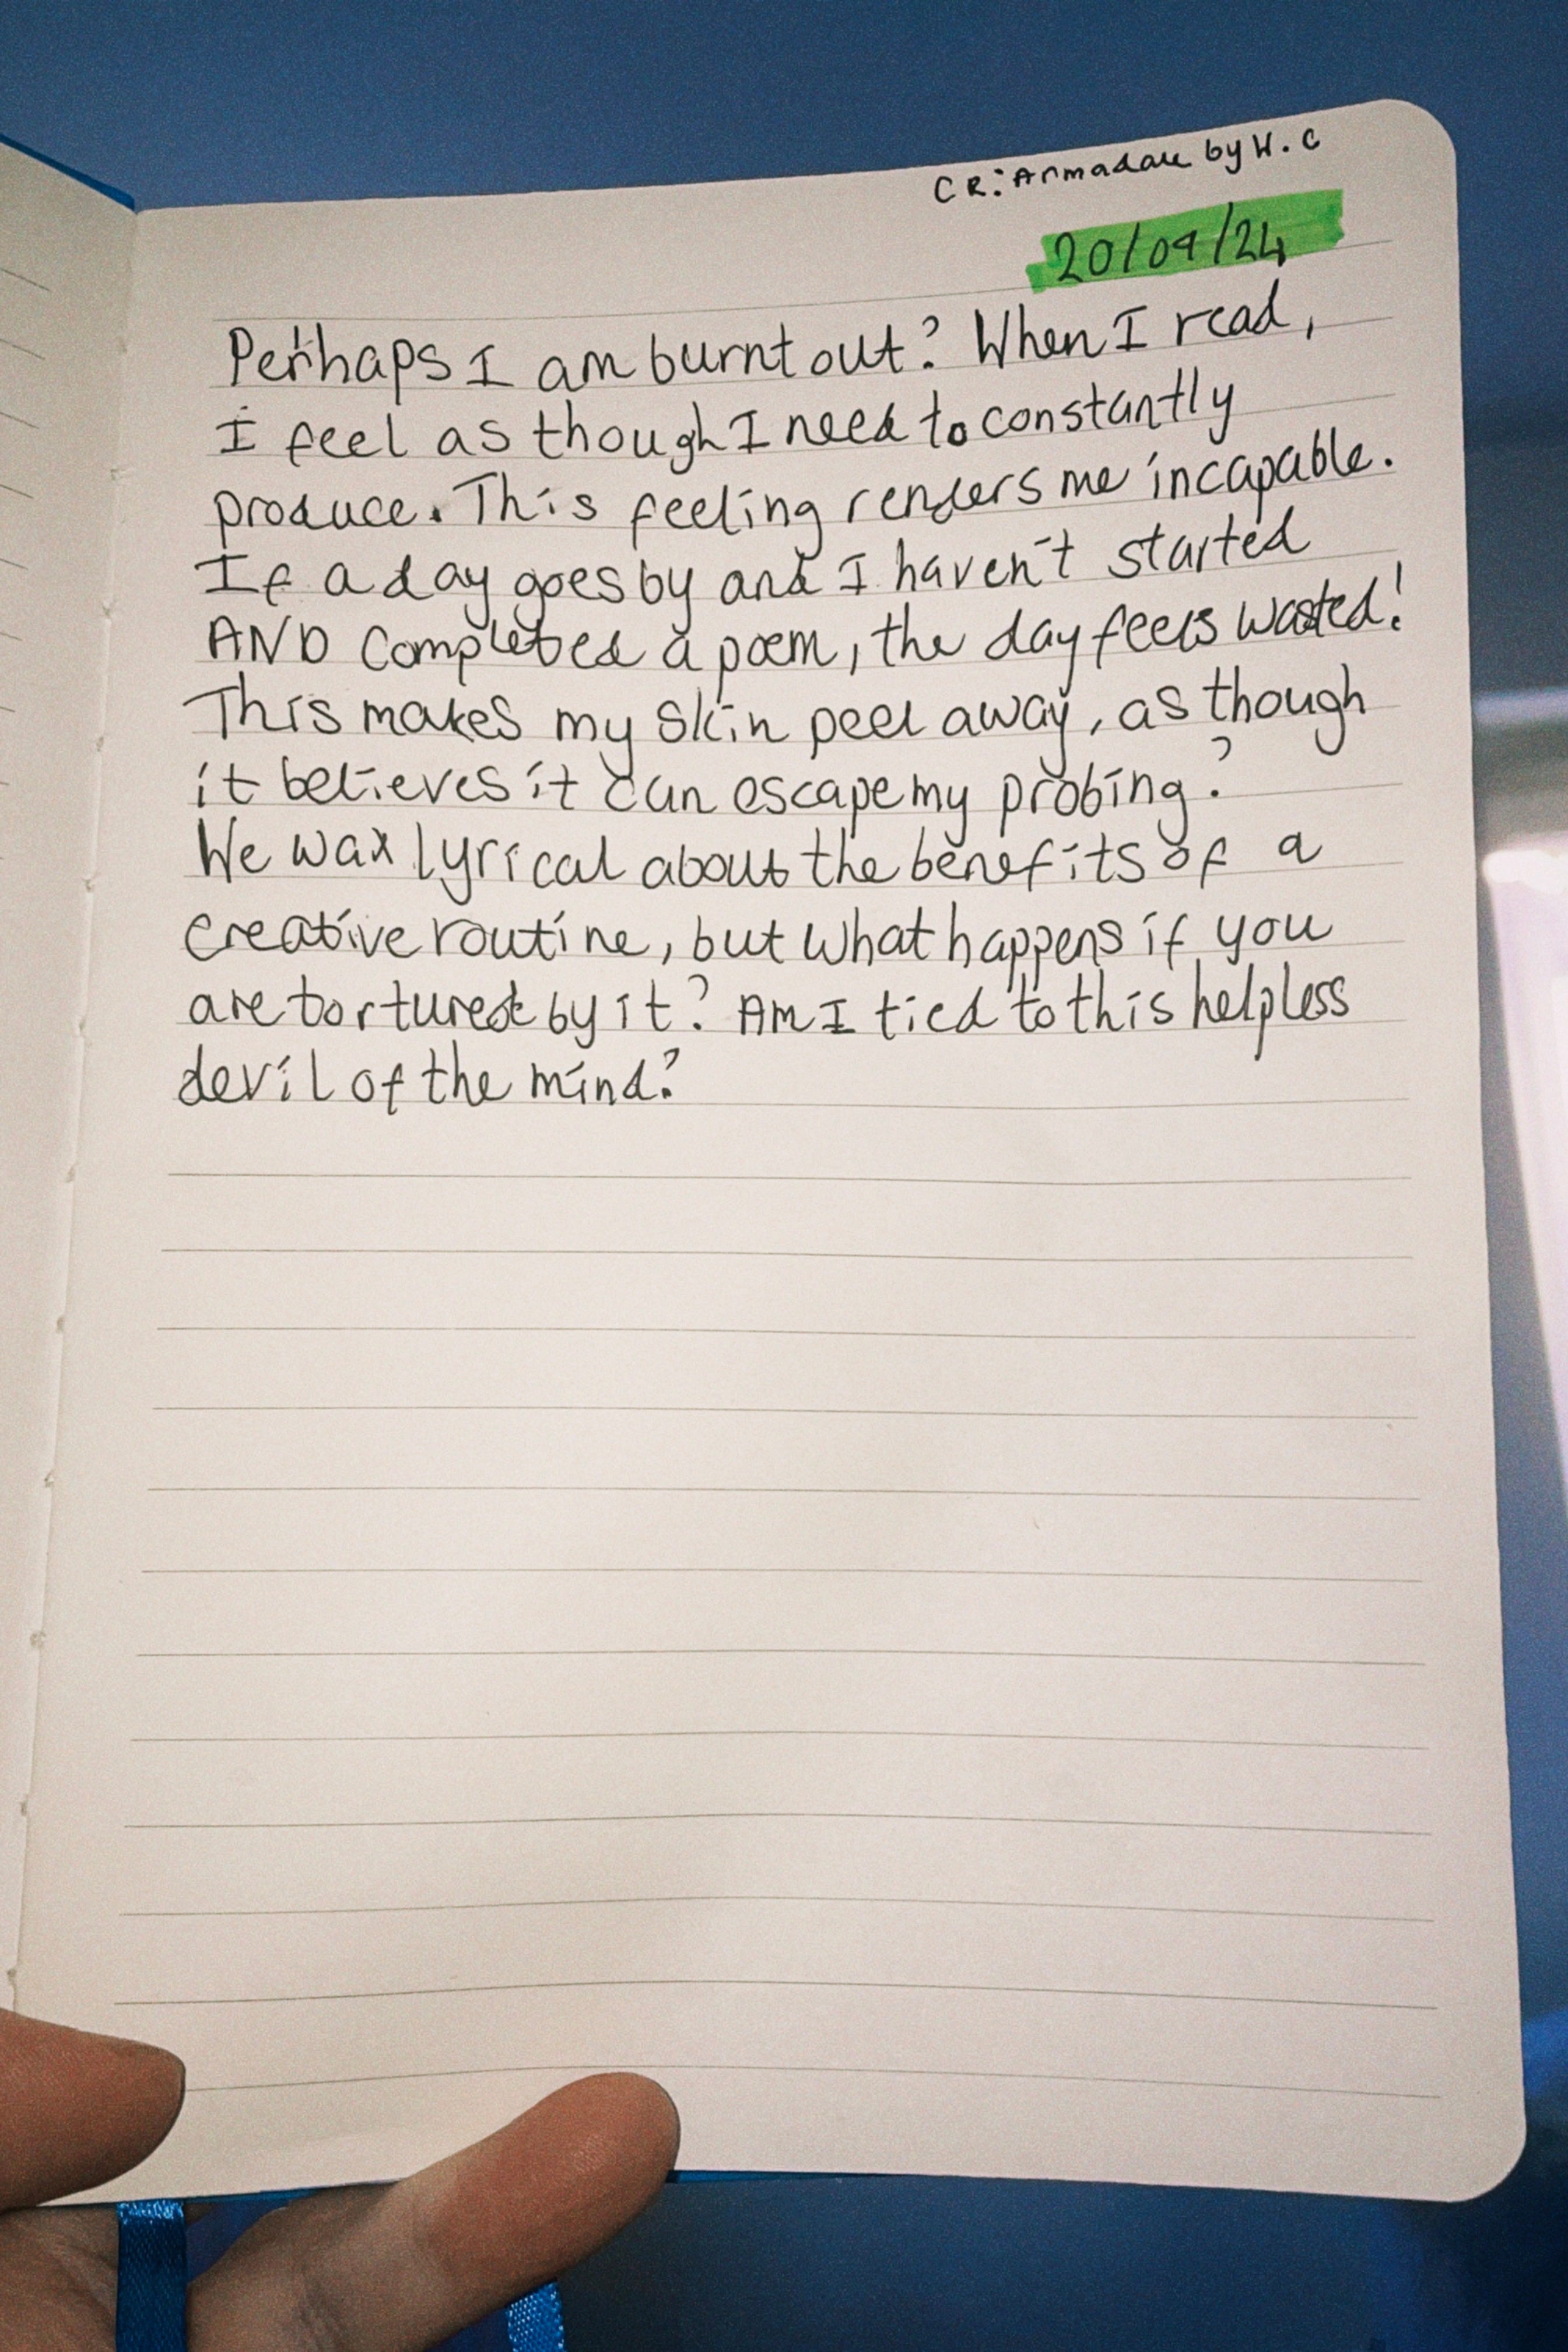 CR: Armadale by W. C
20/09/24
Perhaps I am burnt out? When I read,
I feel as though I need to constantly
produce. This feeling renders me incapable.
If a day goes by and I haven't started
AND completed a poem, the day feels wasted!
This makes my skin peel away, as though
it believes it can escape my probing?
We wax lyrical about the benefits of a
creative routine, but what happens if you
are tortured by it? Am I tied to this helpless
devil of the mind?